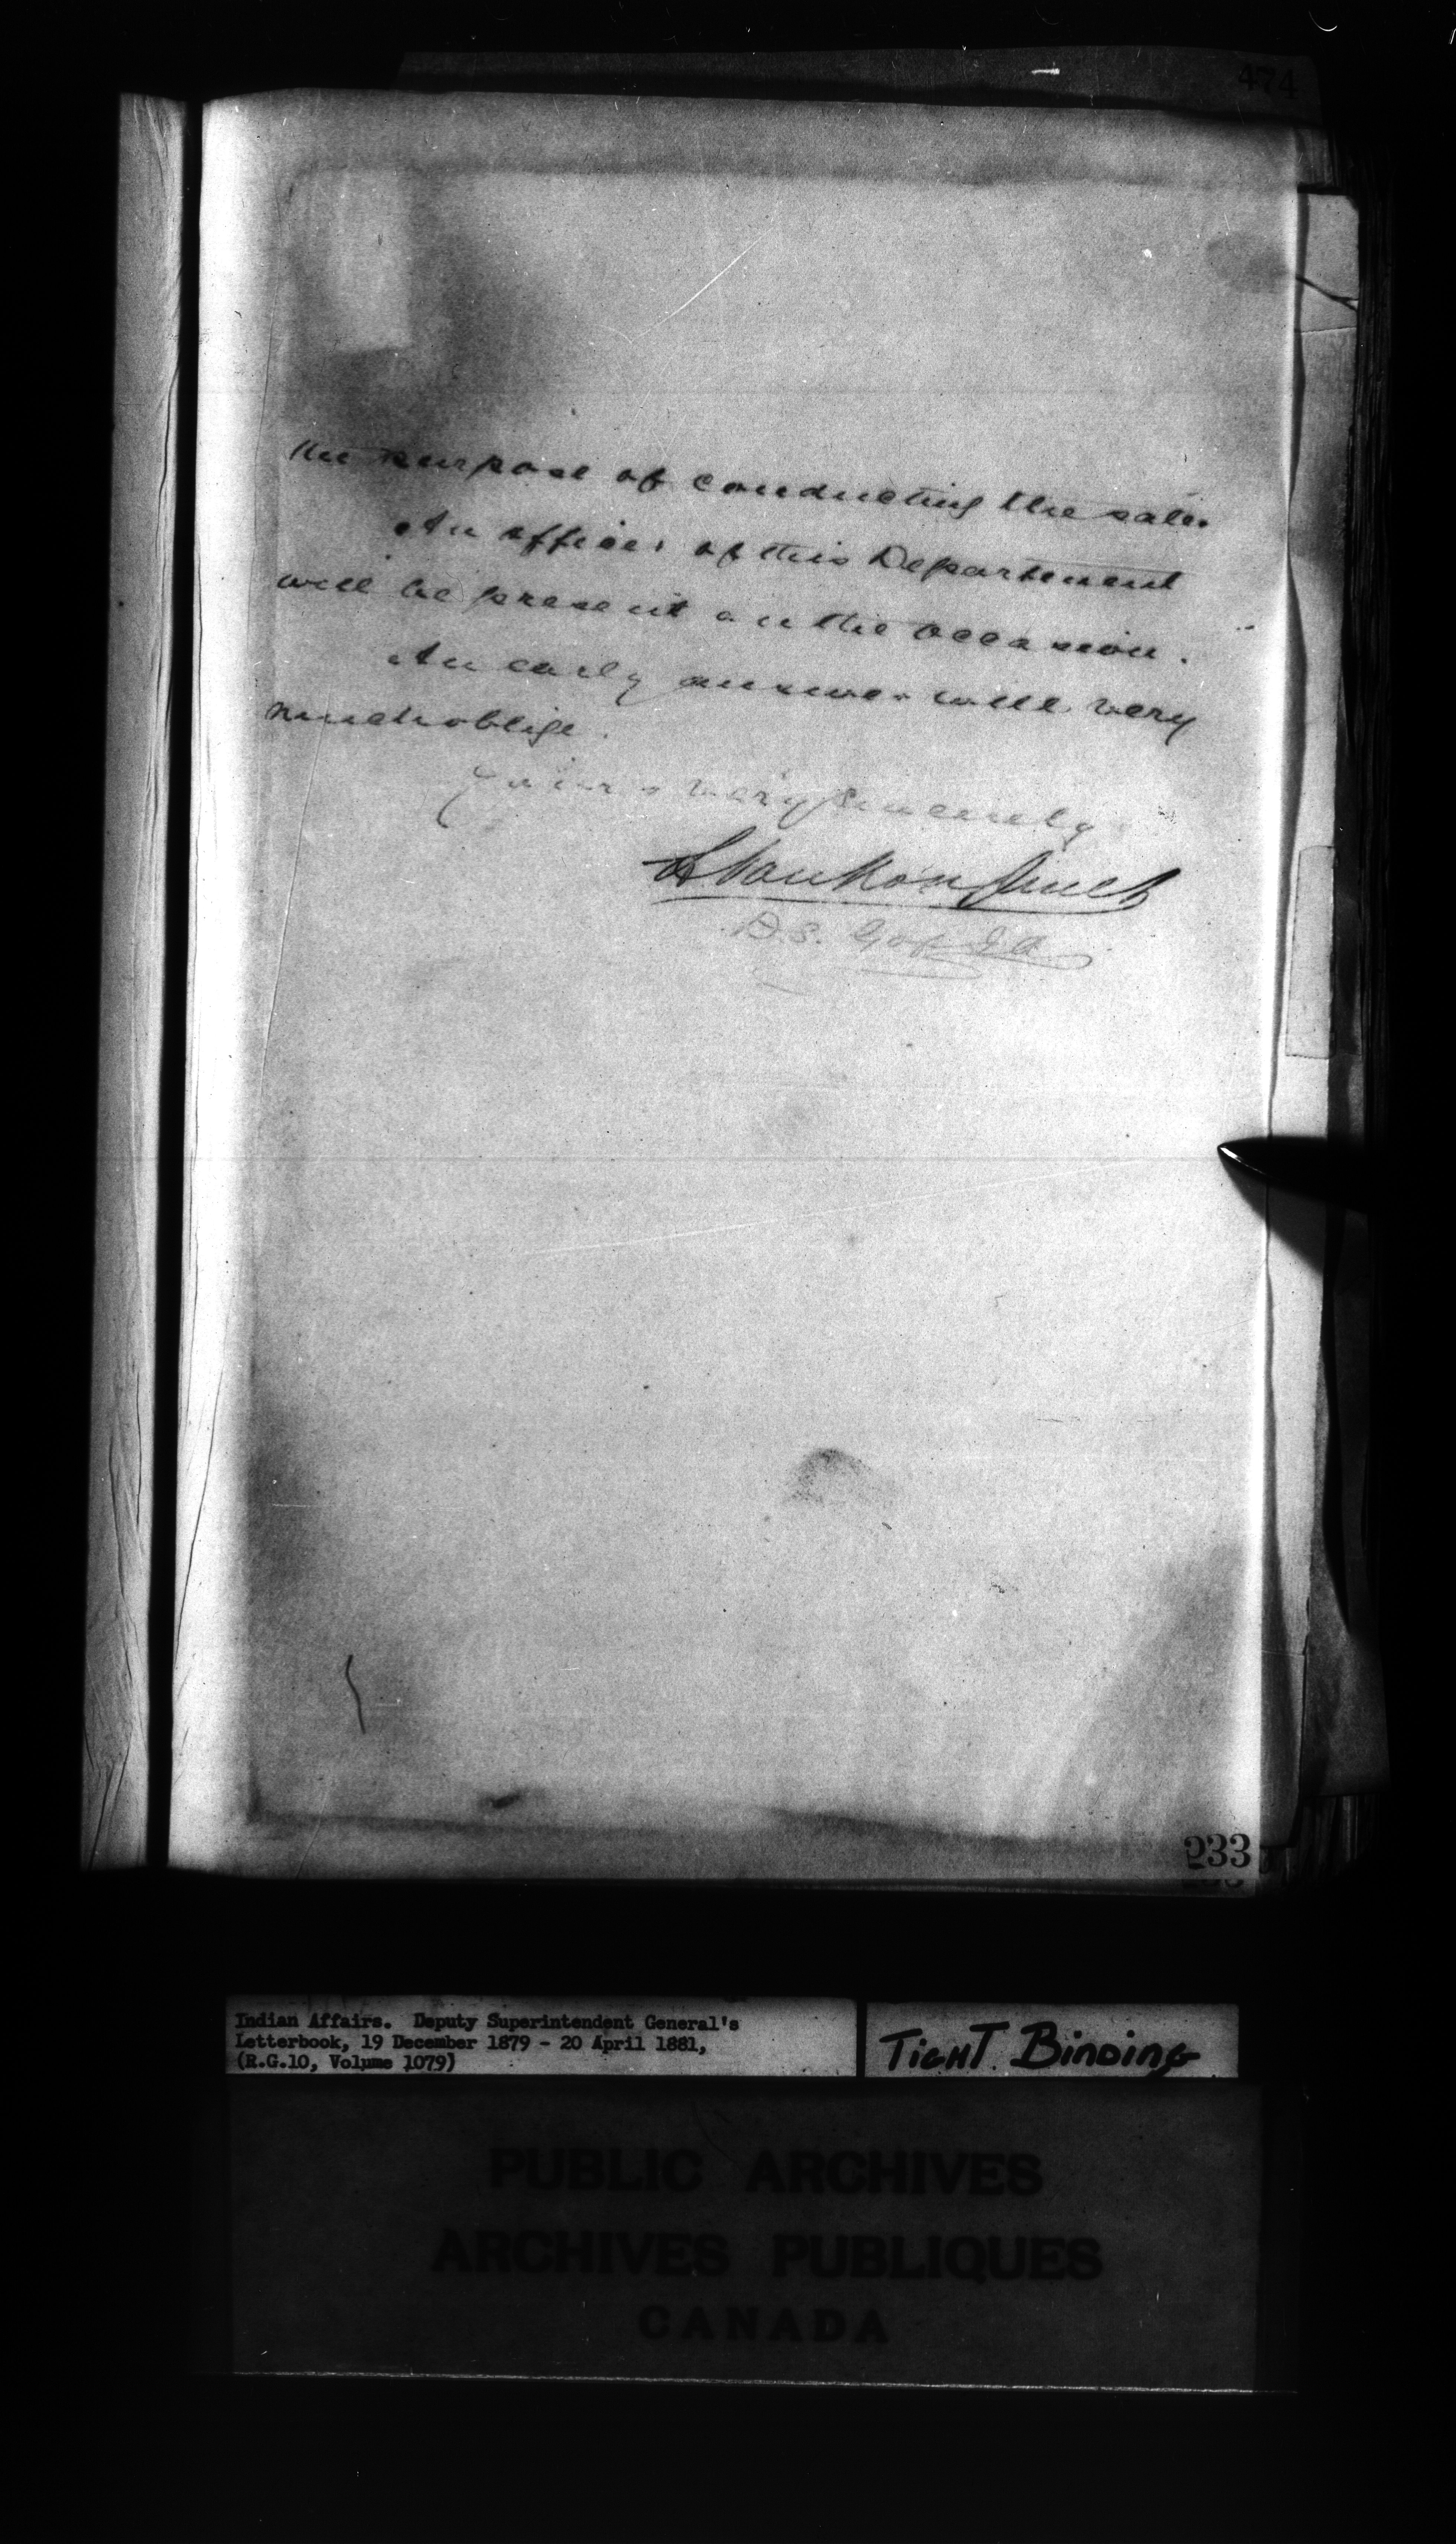 474
the purpose of conducting the sale.
An officer of this Department
will be present on the occasion.
An early answer will very
much oblige.
Yours very sincerely
L VanKoughnet
D.S. G of I A
233
Indian Affairs. Deputy Superintendent General's
Letterbook, 19 December 1879 - 20 April 1881,
(R.G.10, Volume 1079)
TIGHT BINDING
PUBLIC ARCHIVES
ARCHIVES PUBLIQUES
CANADA